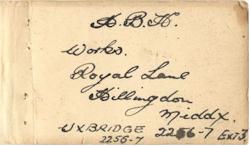 A.B.K.
Works.
Royal Lane
Hillingdon
Middx.
UXBRIDGE 2256-7 Ext 3
2256-7